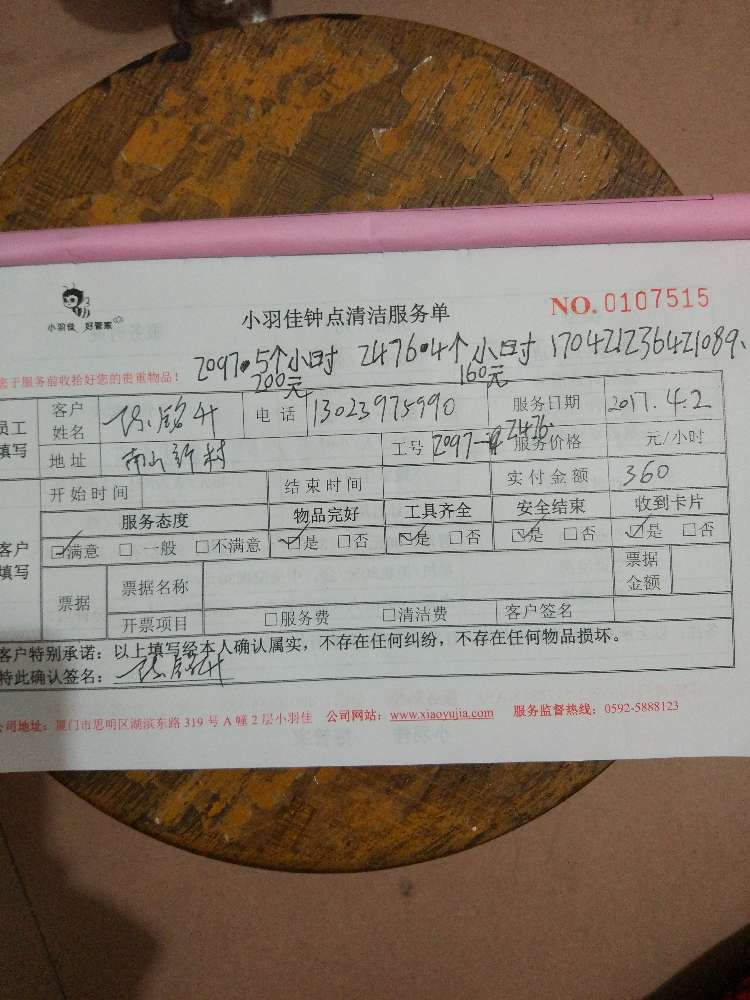 小羽佳 好管家
小羽佳钟点清洁服务单
NO. 0107515
于服务前收拾好您的贵重物品！
2097.5个小时 2476.4个小时 170421236421089.
200元 160元
员工填写 客户姓名 电话 13023975990 服务日期 2017.4.2
地址 南山新村 工号 2097 2476 服务价格 元/小时
开始时间 结束时间 实付金额 360
服务态度 物品完好 工具齐全 安全结束 收到卡片
客户填写 ☑满意 □一般 □不满意 ☑是 □否 ☑是 □否 ☑是 □否 ☑是 □否
票据 票据名称 票据金额
开票项目 □服务费 □清洁费 客户签名
客户特别承诺：以上填写经本人确认属实，不存在任何纠纷，不存在任何物品损坏。
特此确认签名：
公司地址：厦门市思明区湖滨东路 319 号 A 幢 2 层小羽佳 公司网站：www.xiaoyujia.com 服务监督热线：0592-5888123